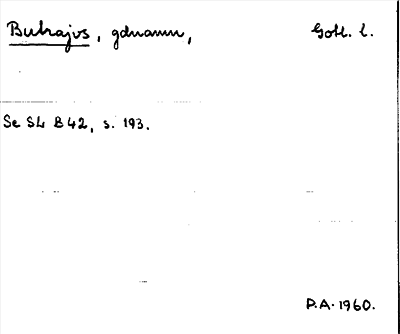 Butrajvs, gdnamn, Gotl. l.
Se SL B 42, s. 193.
P.A. 1960.